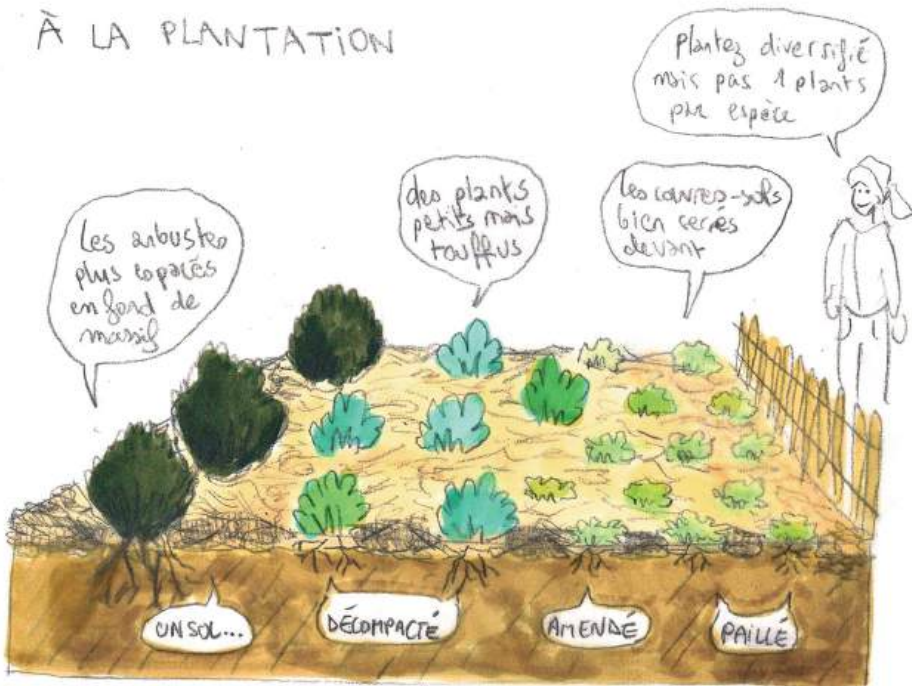 À LA PLANTATION
plantez diversifié
mais pas 1 plants
par espèce
les arbustes
plus espacés
en fond de
massif
des plants
petits mais
touffus
les couvres-sols
bien serrés
devant
UN SOL...
DÉCOMPACTÉ
AMENDÉ
PAILLÉ